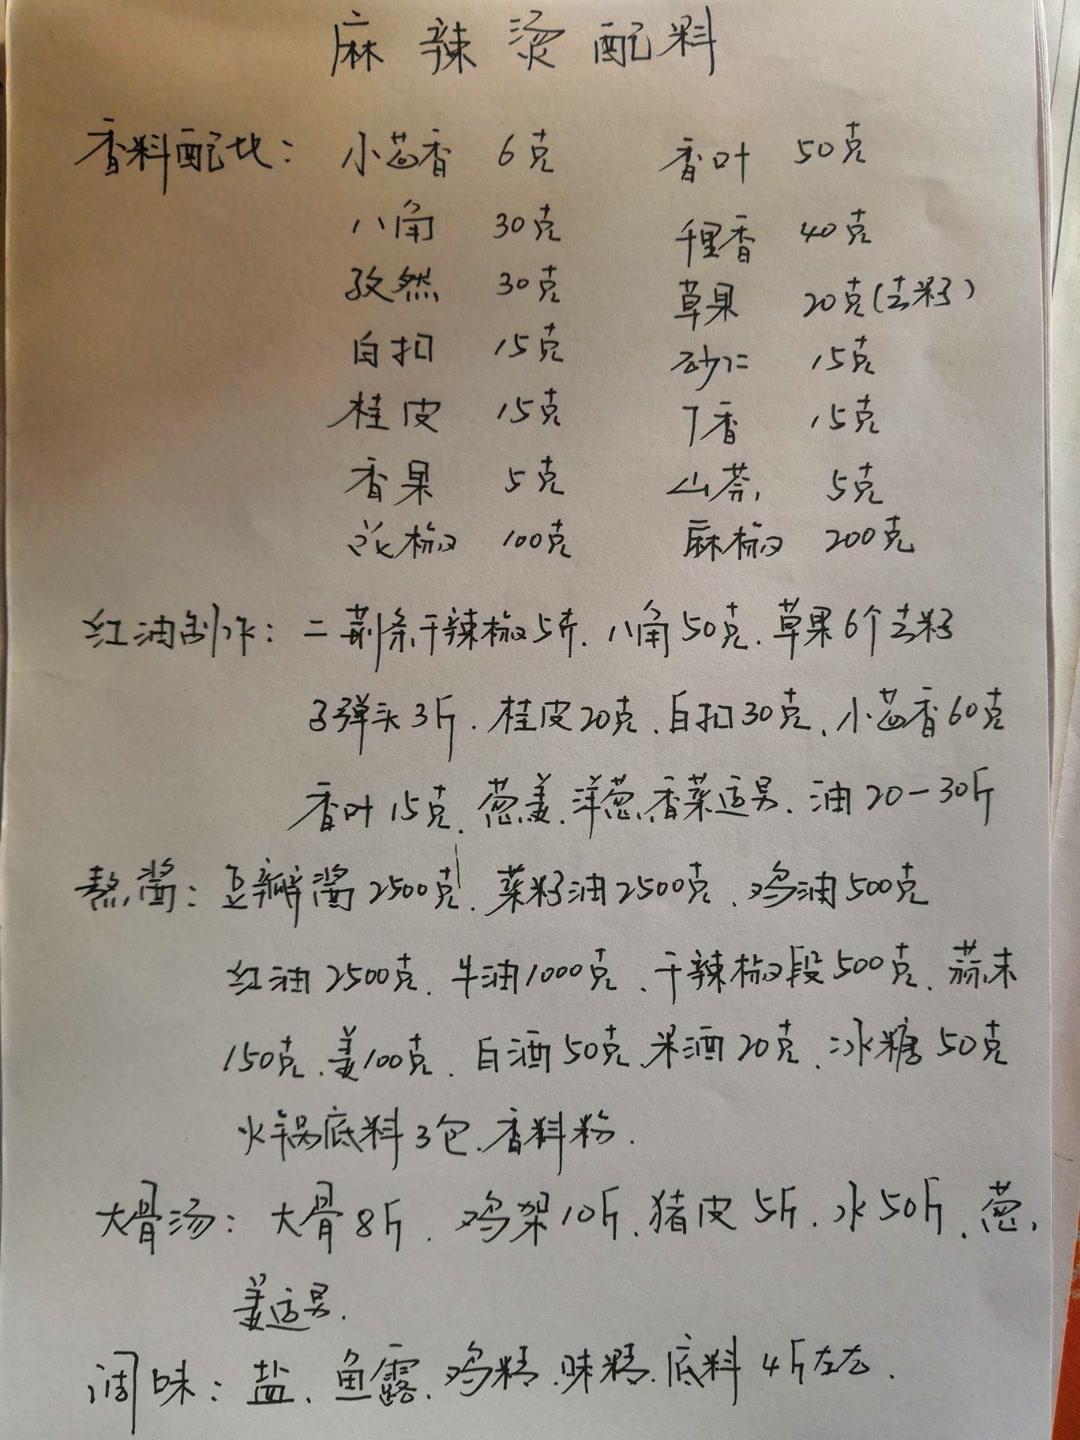 麻辣烫配料
香料配比: 小茴香 6克 香叶 50克
八角 30克 千里香 40克
孜然 30克 草果 20克(去籽)
白扣 15克 砂仁 15克
桂皮 15克 丁香 15克
香果 5克 山萘 5克
花椒 100克 麻椒 200克
红油制作: 二荆条干辣椒5斤.八角50克.草果6个去籽
子弹头3斤.桂皮20克.白扣30克、小茴香60克
香叶15克.葱姜.洋葱.香菜适另.油20-30斤
熬酱: 豆瓣酱2500克.菜籽油2500克、鸡油500克
红油2500克.牛油1000克、干辣椒段500克、蒜末
150克、姜100克.白酒50克.米酒20克、冰糖50克
火锅底料3包.香料粉.
大骨汤: 大骨8斤.鸡架10斤.猪皮5斤.水50斤.葱.
姜适另.
调味: 盐、鱼露.鸡精.味精.底料4斤左右.